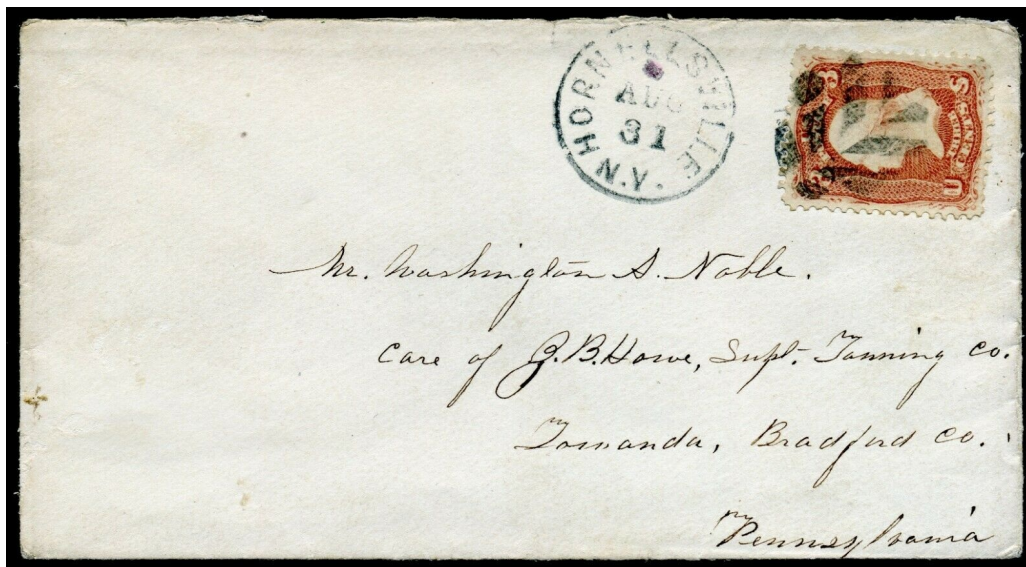 HORNELLSVILLE
AUG
31
N.Y.
3 CENTS
U
Mr. Washington S. Noble.
Care of G.B. Howe, Supt. Tanning Co.
Towanda, Bradford Co.
Pennsylvania